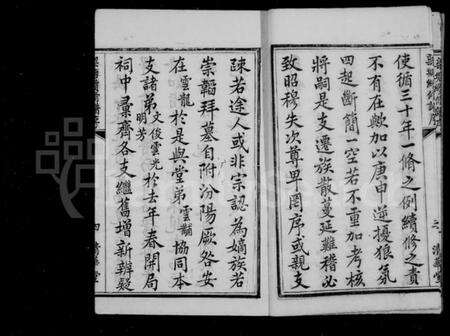 使循三十年一修之例續修之責
不有在歟加以庚申逆擾狼氛
四起斷簡一空若不重加考核
將嗣是支遷族散蔓延難稽必
致昭穆失次尊卑罔序或親支
疎若途人或非宗認為嫡族若
崇韜拜墓自附汾陽厥咎安
在雲龍於是與堂弟雲黼協同本
支諸弟文俊雲光明芳於去年春開局
祠中彙齊各支繼舊增新辨疑
四
堂